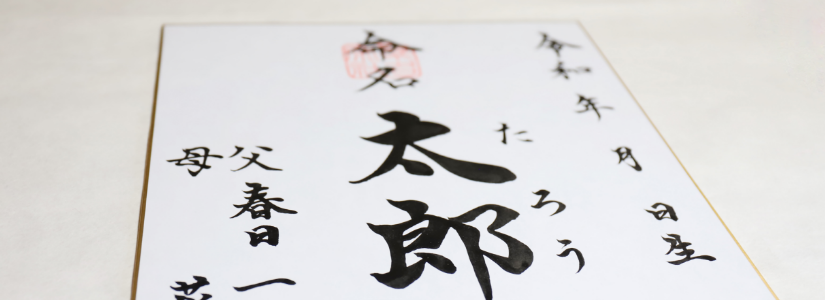 令和 年 月 日生
命名
太郎
たろう
父 春日 一
母